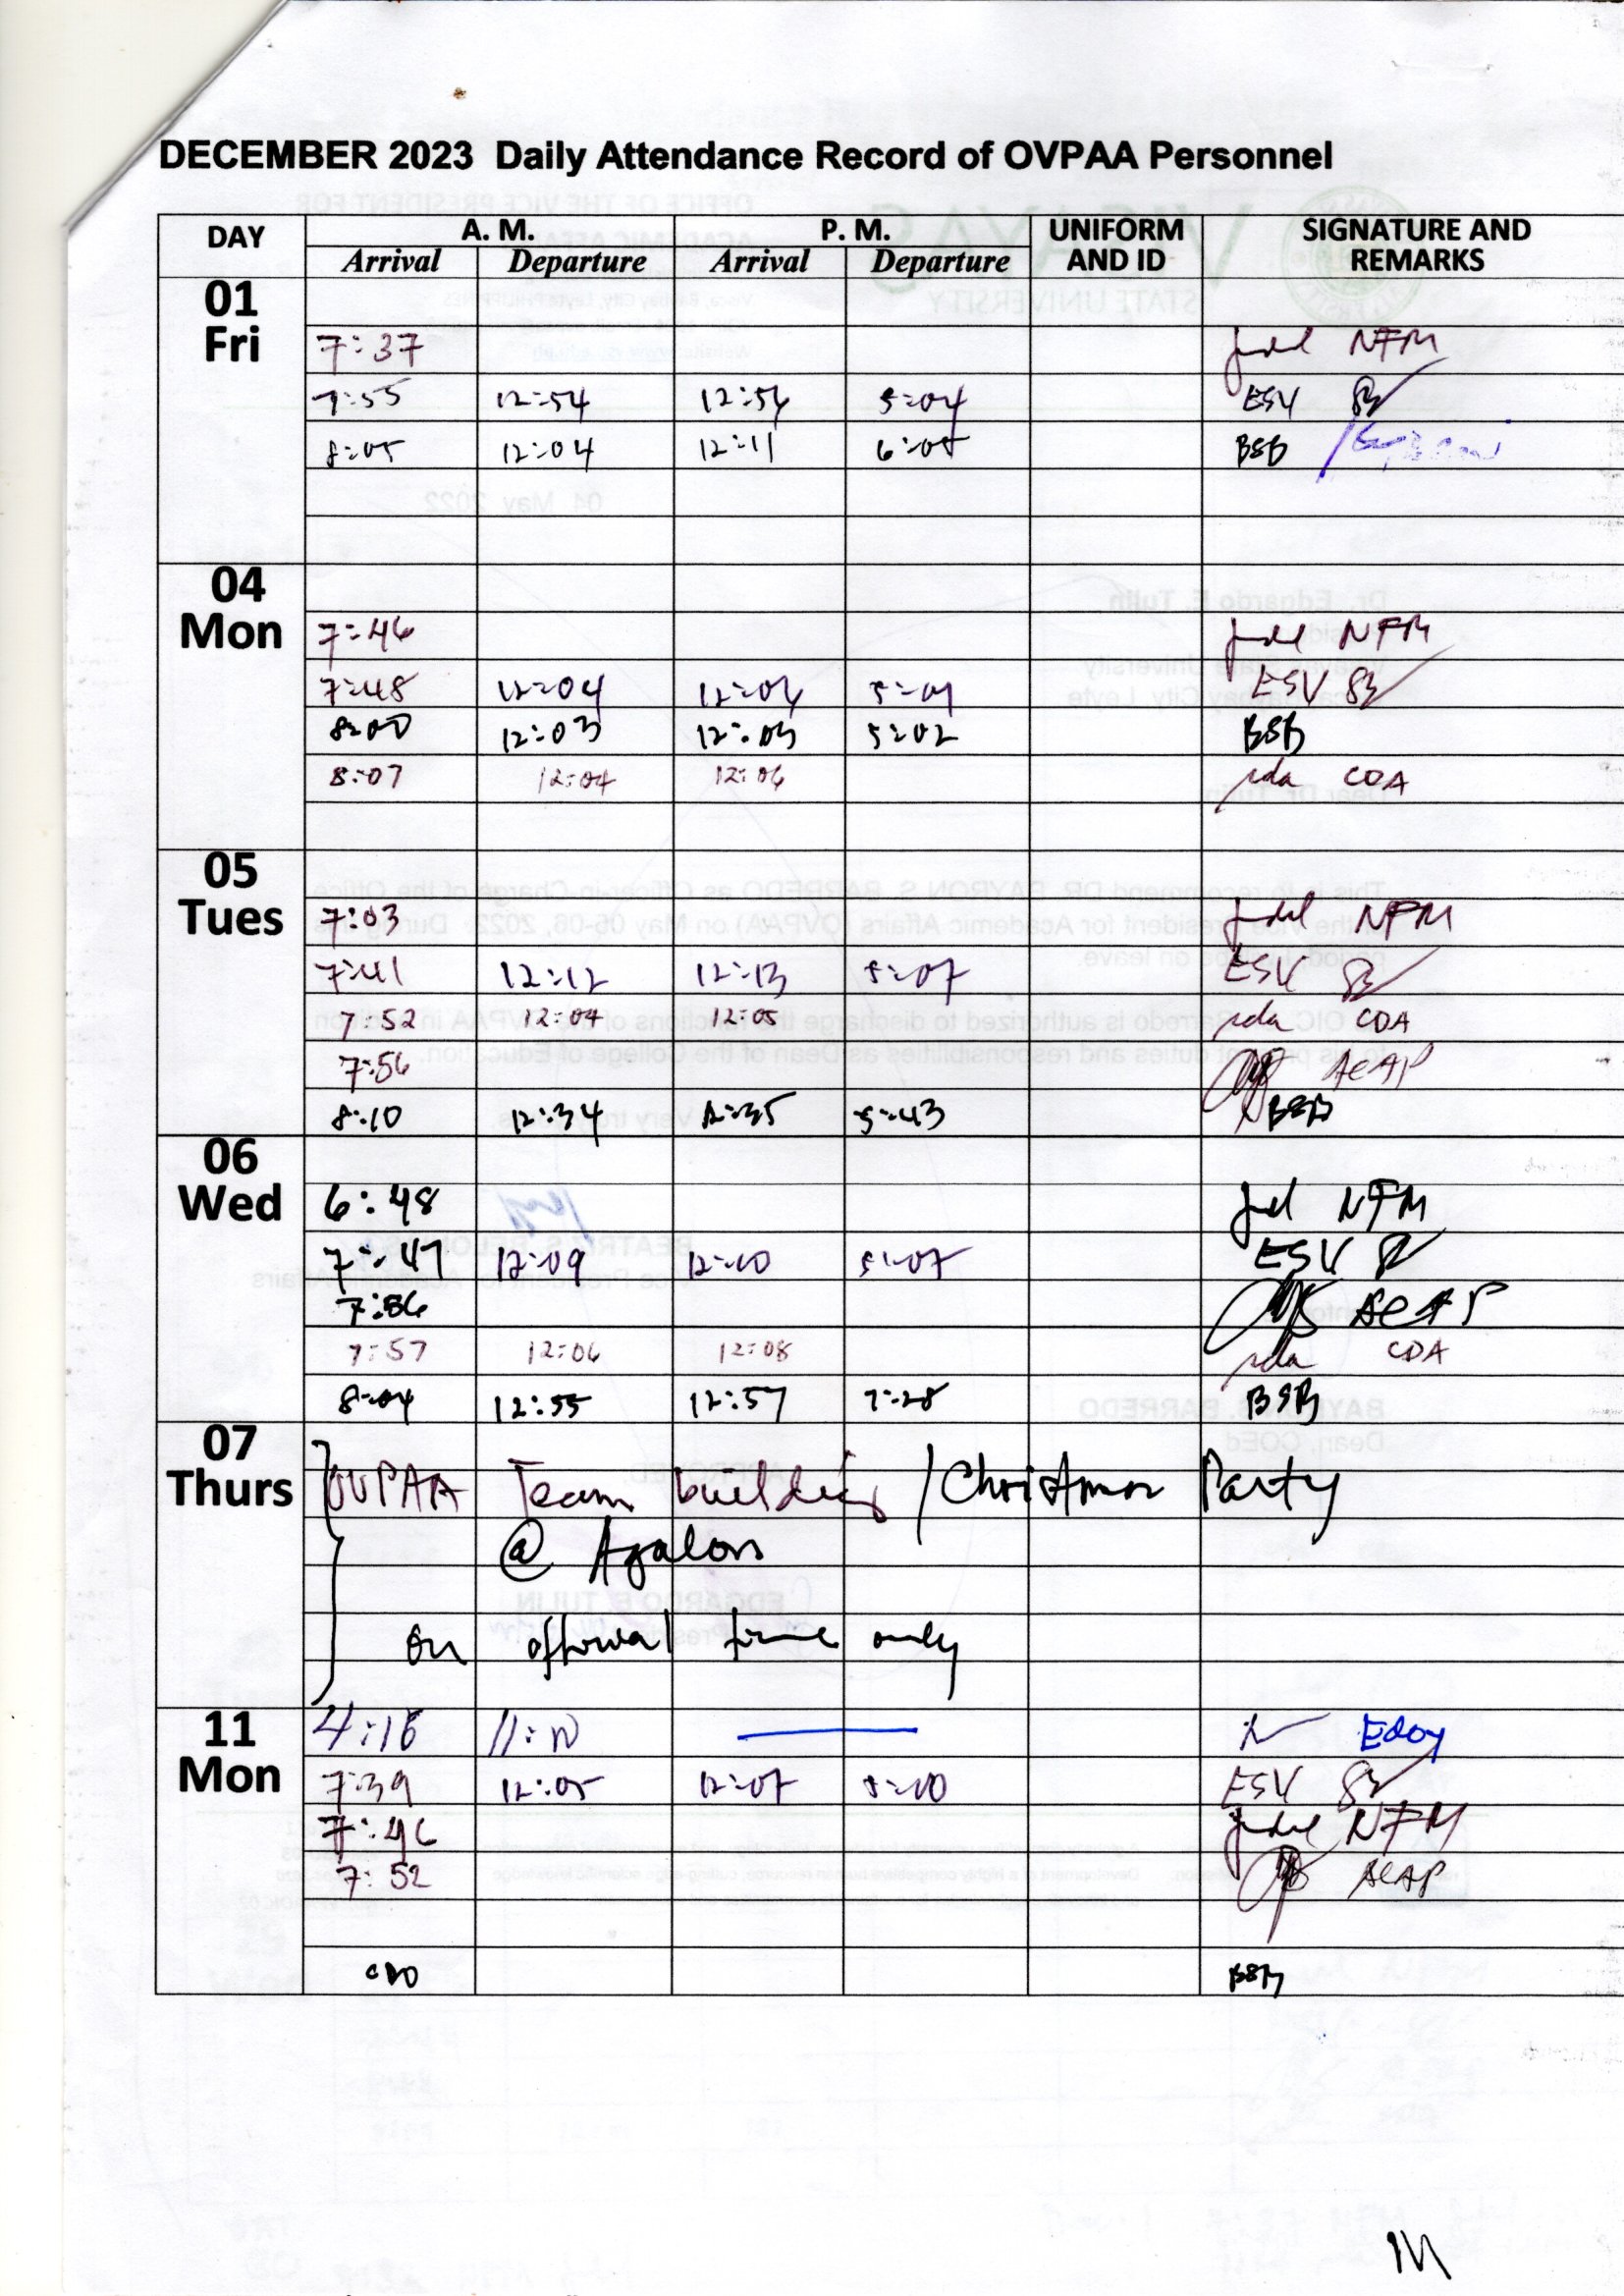 DECEMBER 2023 Daily Attendance Record of OVPAA Personnel
DAY A. M. P. M. UNIFORM AND ID SIGNATURE AND REMARKS
Arrival Departure Arrival Departure
01 Fri
7:37 NFM
7:55 12:54 12:56 5:04 ESV
8:05 12:04 12:11 6:05 BSB
04 Mon
7:46 NFM
7:48 12:04 12:06 5:01 ESV
8:00 12:03 12:03 5:02 BSB
8:07 12:04 12:06 CDA
05 Tues
7:03 NFM
7:41 12:12 12:13 5:07 ESV
7:52 12:04 12:05 CDA
7:56 ACAP
8:10 12:34 12:35 5:43 BSB
06 Wed
6:48 NFM
7:47 12:09 12:10 5:07 ESV
7:56 ACAP
7:57 12:06 12:08 CDA
8:04 12:55 12:57 7:28 BSB
07 Thurs
OVPAA Team building / Christmas Party
@ Agalon
on official time only
11 Mon
4:18 11:10 Edoy
7:39 12:05 12:07 5:10 ESV
7:46 NFM
7:52 ACAP
BSB